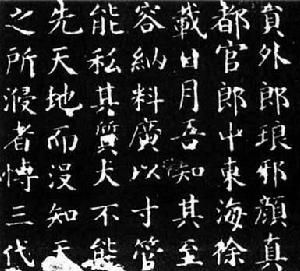 貟外郎琅邪顏真
都官郎中東海徐
載日月吾知其至
容納料廣以寸管
能私其質夫不能
先天地而沒知天
之所沒者博三代